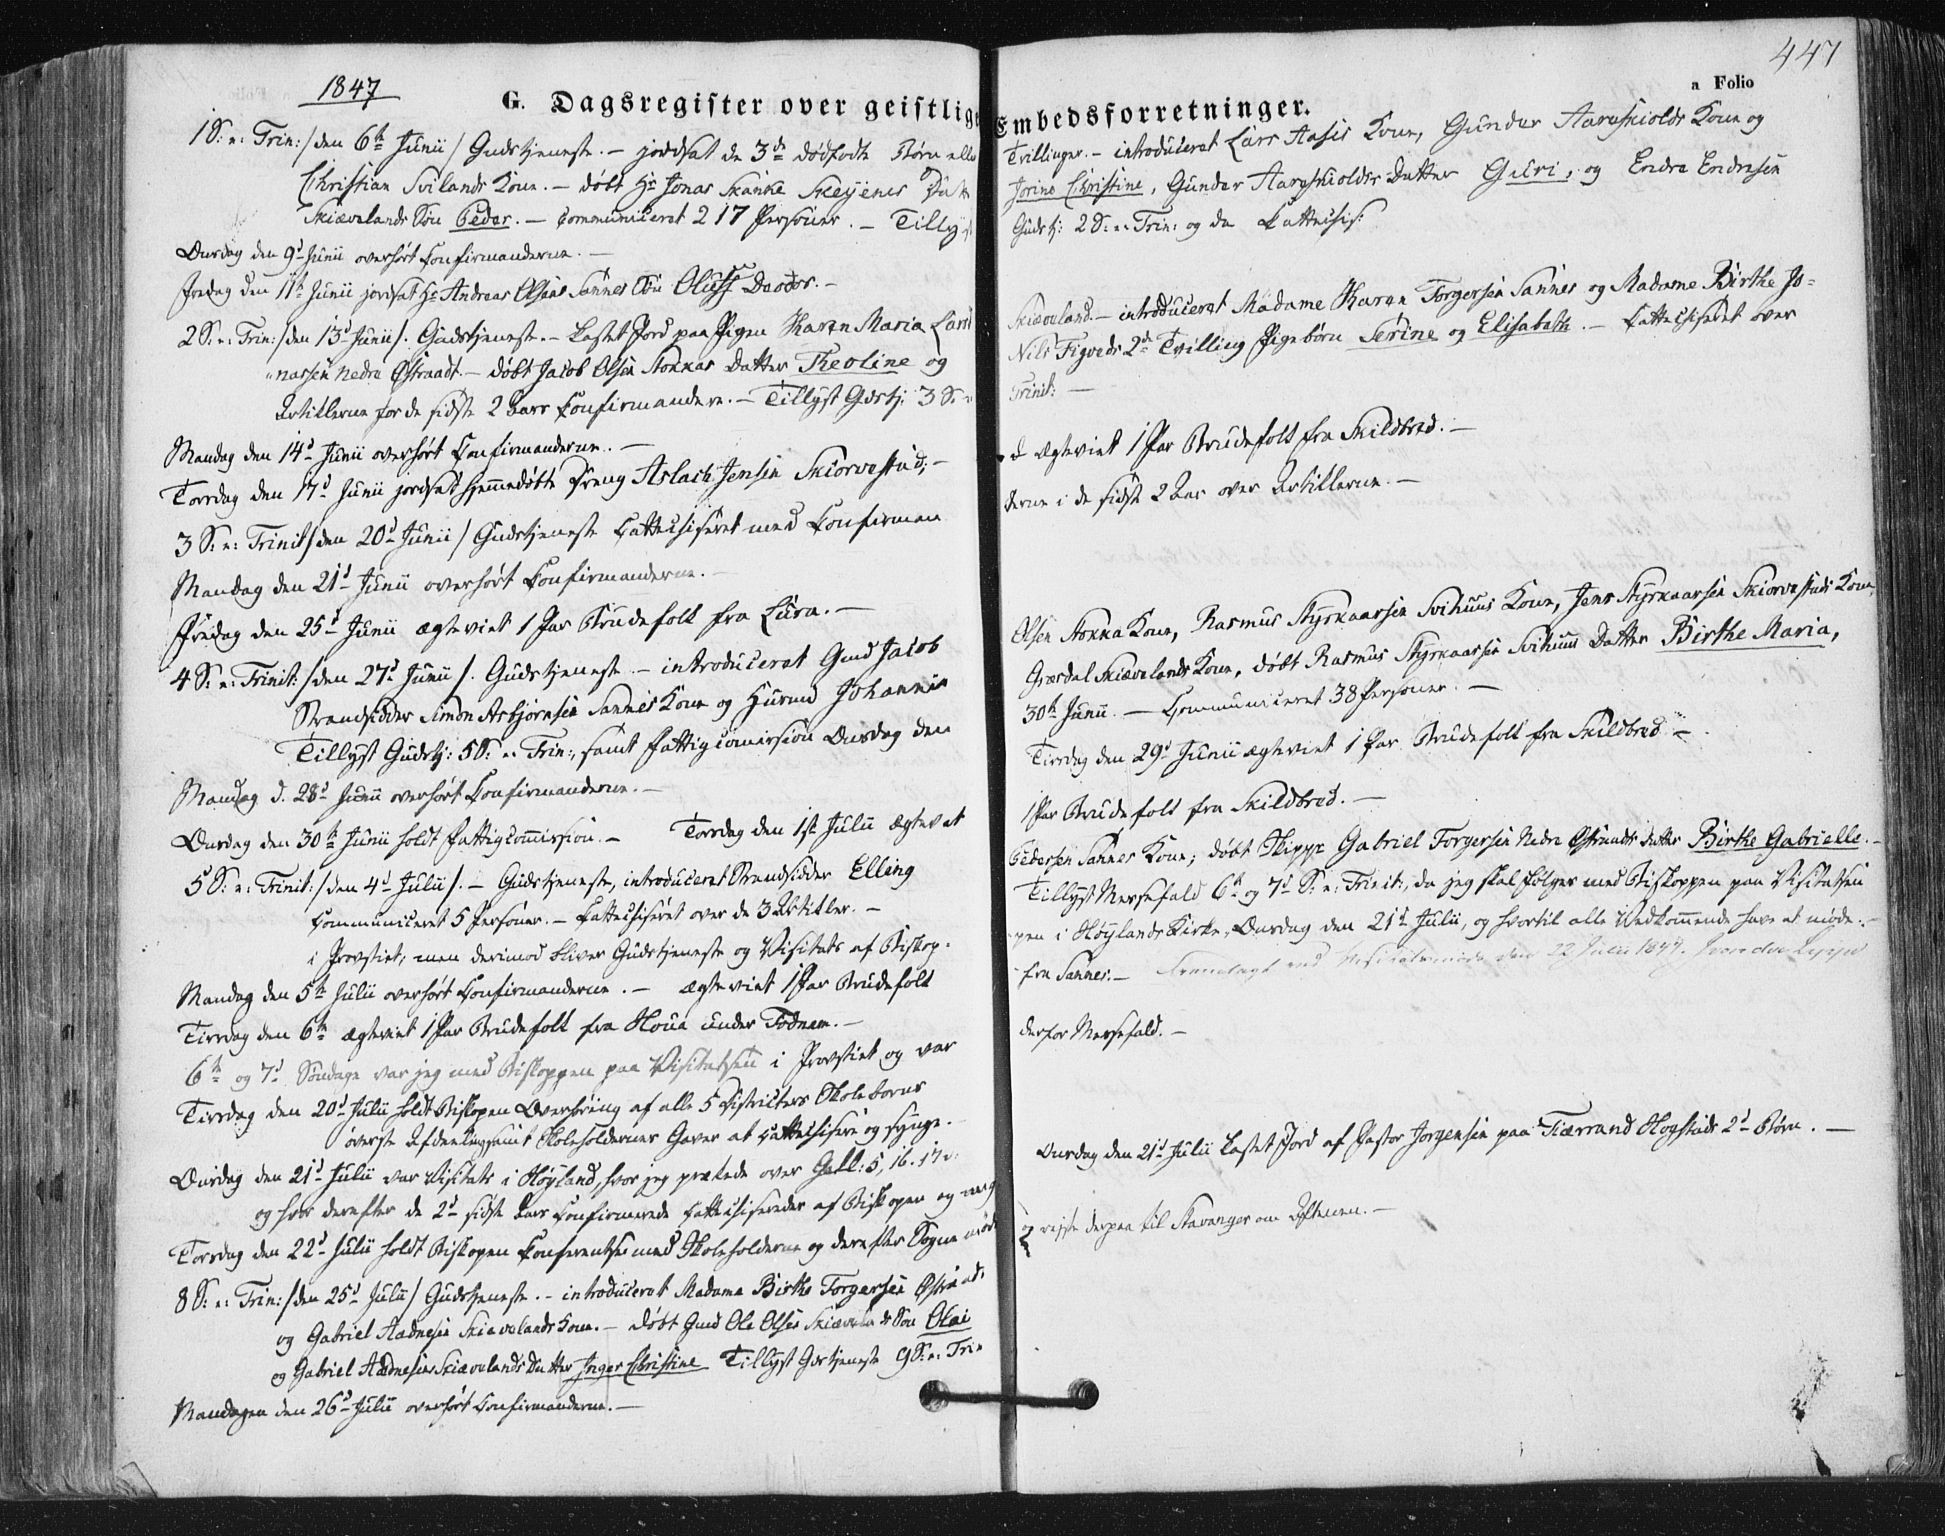 1847
447
a Folio
G. Dagsregister over geistlige Embedsforretninger.
1 S: e: Trin: /den 6te Junii/ Gudstjeneste. – jordsat de 3de dødfødte Børn eller Trillinger. – introduceret Lars Aasis Kone, Gunder Aareskiolds Kone og
Christian Svilands Kone. – døbt Hr Jonas Skanke Skeyenes Datter Jorine Christine, Gunder Aareskiolds Datter Guri, og Endre Endresen
Skiævelands Søn Peder. – Communiceret 217 Personer. – Tillyst Gudstj: 2 S: e: Trin: og da Cattechis:
Onsdag den 9d Junii overhørt Confirmanderne. –
Fredag den 11te Junii jordsat Hr Andreas Olsens Sannes Søn Oluff Daodor. –
2 S: e: Trin: /den 13d Junii/. Gudstjeneste. – Kastet Jord paa Pigen Karen Maria Lars Skiæveland. – introduceret Madame Karen Torgersen Sannes og Madame Birthe Jo-
nassen Nedre Østraadt. – døbt Jacob Olsen Stokkas Datter Theoline og Nils Figveds 2de Tvilling Pigebørn Serine og Elisabeth. – Cattechiseret over
Artiklerne for de sidste 2 Aars Confirmandere. – Tillyst Gdstj: 3 S: e: Trinit: –
Mandag den 14d Junii overhørt Confirmanderne. –
Torsdag den 17d Junii jordsat hjemmedøbte Dreng Aslach Jensen Skiorvestad; – d ægteviet 1 Par Brudefolk fra Skildbred. –
3 S: e: Trinit /den 20d Junii/ Gudstjeneste Cattechiseret med Confirmanderne i de sidste 2 Aar over Artiklerne. –
Mandag den 21d Junii overhørt Confirmanderne. –
Fredag den 25d Junii ægteviet 1 Par Brudefolk fra Lura. –
4 S: e: Trinit: /den 27d Junii/. Gudstjeneste – introduceret Gmd Jacob Olsen Stokka Kone, Rasmus Styrkaarsen Svihuus Kone, Jens Styrkaarsen Skiorvestads Kone,
Strandsidder Simon Asbjørnsen Sannes Kone og Huusmd Johannis Græsdal Skiævelands Kone, døbt Rasmus Styrkaarsen Svihuus Datter Birthe Maria,
Tillyst Gudstj: 5 S: e: Trin:, samt Fattigcomission Onsdag den 30te Junii. – Communiceret 38 Personer. –
Mandag d. 28d Junii overhørt Confirmanderne. – Tirsdag den 29d Junii ægteviet 1 Par Brudefolk fra Skildbred –
Onsdag den 30te Junii holdt Fattigcommission. – Torsdag den 1ste Julii ægteviet 1 Par Brudefolk fra Skildbred. –
5 S: e: Trinit: /den 4d Julii/. – Gudstjeneste, introduceret Strandsidder Elling Pedersen Sannes Kone; døbt Skippr Gabriel Torgersen Nedre Østraads datter Birthe Gabrielle. –
Communiceret 5 Personer. – Cattechiseret over de 3 Artikler. – Tillyst Messefald 6te og 7d S: e: Trinit:, da jeg skal følger med Biskoppen paa Visitatsen
i Provstiet; men derimod bliver Gudstjeneste og Visitats af Biskoppen i Høylands Kirke, Onsdag den 21d Julii, og hvortil alle Vedkommende have at møde. –
Mandag den 5te Julii overhørt Confirmanderne. – ægteviet 1 Par Brudefolk fra Sannes. – Fremlagt ved Visitatsmøde den 22 Julii 1847.
Tirsdag den 6te ægteviet 1 Par Brudefolk fra Houe under Fodnem. –
6te og 7d Søndage var jeg med Biskoppen paa Visitatsen i Provstiet og var derfor Messefald. –
Tirsdag den 20d Julii holdt Biskopen Overhøring af alle 5 Districters Skole børns
øverste Afdeeling samt Skoleholdernes Gaver at cattechisere og synge. –
Onsdag den 21d Julii var Visitats i Høyland, hvor jeg prækede over Gall: 5, 16. 17 v: Onsdag den 21d Julii Kastet Jord af Pastor Jørgensen paa Tiærrand Hogstads 2d Børn. –
og hvor derefter de 2d sidste Aars Confirmerede cattechiseredes af Biskopen og mig
Torsdag den 22d Julii holdt Biskopen Conferentse med Skoleholderne og derefter Sognemøde og reiste derpaa til Stavanger om Aftenen. –
8 S: e: Trin: /den 25d Julii/ Gudstjeneste. – introduceret Madame Birthe Torgersen Østraad:
og Gabriel Aadnesen Skiævelands Kone. – Døbt Gmd Ole Olsen Skiævelands Søn Olai
og Gabriel Aadnesens Skiævelands Datter Inger Christine Tillyst Gdstjeneste 9 S: e: Trin
Mandagen den 26d Julii overhørt Confirmanderne. –